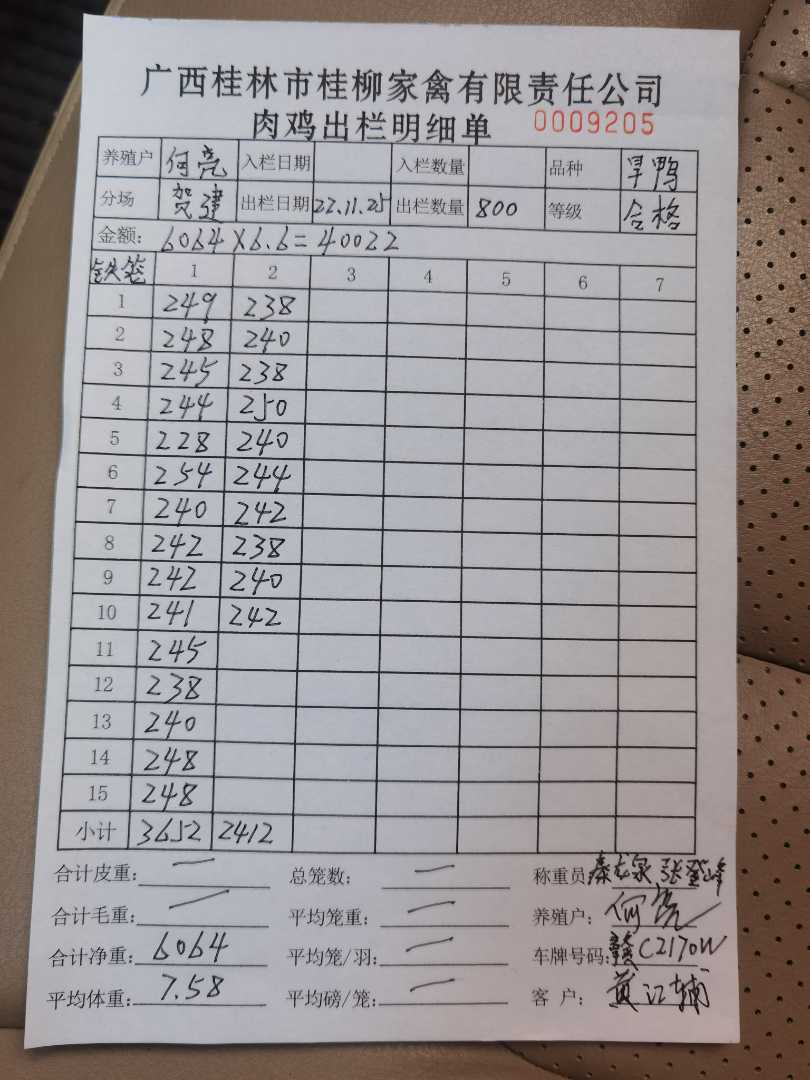 广西桂林市桂柳家禽有限责任公司
肉鸡出栏明细单 0009205
养殖户 何亮 入栏日期 入栏数量 品种 旱鸭
分场 贺建 出栏日期 22.11.25 出栏数量 800 等级 合格
金额: 6064×6.6=40022
铁笼 1 2 3 4 5 6 7
1 249 238
2 248 240
3 245 238
4 244 250
5 228 240
6 254 244
7 240 242
8 242 238
9 242 240
10 241 242
11 245
12 238
13 240
14 248
15 248
小计 3652 2412
合计皮重: 一 总笼数: 一 称重员: 秦龙泉 张登峰
合计毛重: 一 平均笼重: 一 养殖户: 何亮
合计净重: 6064 平均笼/羽: 一 车牌号码: 赣C2170W
平均体重: 7.58 平均磅/笼: 一 客户: 黄江辅